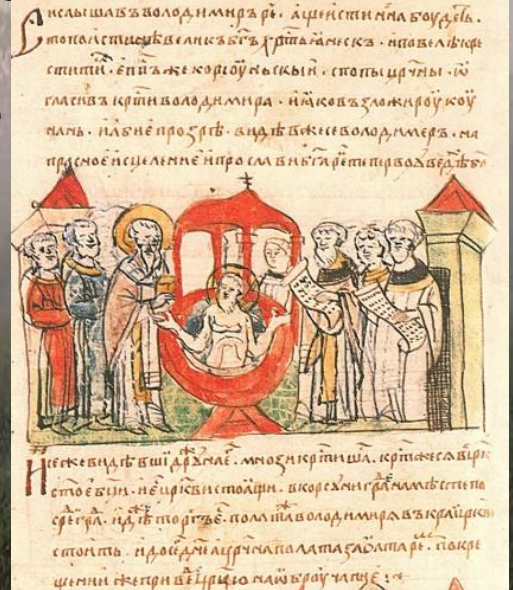 И слышав Володимиръ ре. аще и стинна боудеть.
то поистинѣ великъ бгъ хртьꙗнескъ. и повелѣ кре
ститисѧ. еппъ же корсоуньскыи. с попы црчны. ѡ
гласивъ крти володимира. и ꙗков ъзложи роукоу
нань. и абие прозрѣ. видѣвже се володимеръ. на
прасное исцеление и прослави бга ре
И се же видѣвши дружна е. мнози кртишасѧ. крт же сѧ в црк
стое бци. и е цркви стоѧщи. в корсуни гра на мѣсте по
сре гра. идѣ торгъ е. полата володимирѧ въ краи цркви
стоить. и до се дне. а црчна полата за олтаре. по кре
щении же приве црцю на ѡброучание